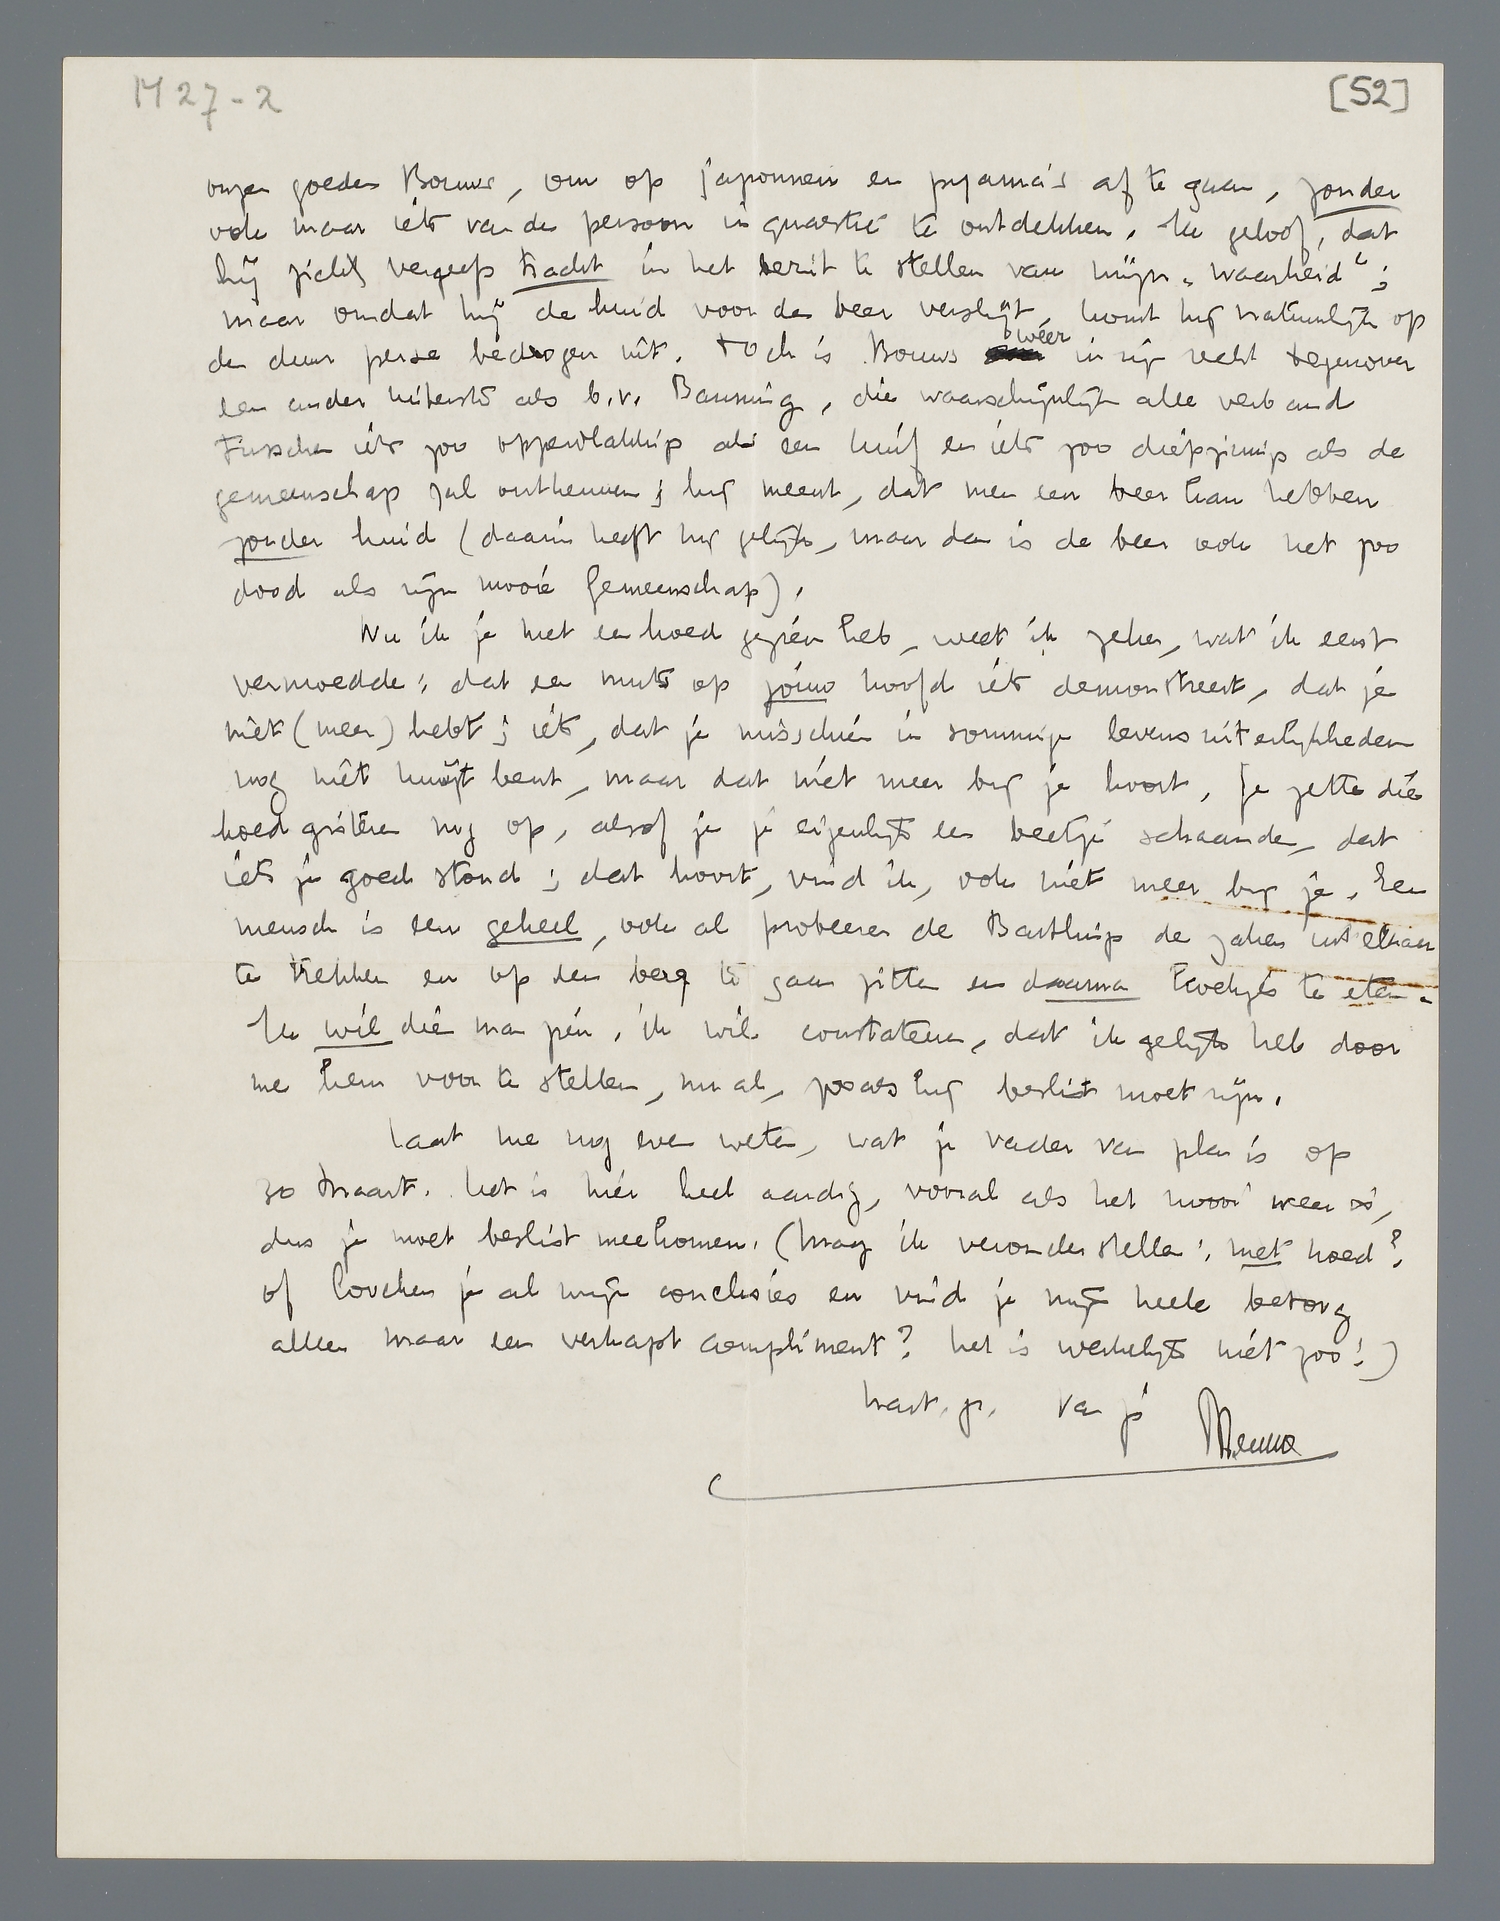 M 27-2
[52]
onzen goeden Bouws, om op japonnen en pyama's af te gaan, zonder
ook maar iets van den persoon in quaestie te ontdekken. Ik geloof, dat
hij zich vergeefs tracht in het bezit te stellen van mijn „waarheid";
maar omdat hij de huid voor den beer verslijt, komt hij natuurlijk op
den duur perse bedrogen uit. Toch is Bouws weer in zijn recht tegenover
een ander uiterste als b.v. Banning, die waarschijnlijk alle verband
tusschen iets zoo oppervlakkigs als een huif en iets zoo diepzinnigs als de
gemeenschap zal ontkennen; hij meent, dat men een beer kan hebben
zonder huid (daarin heeft hij gelijk, maar dan is de beer ook net zoo
dood als zijn mooie Gemeenschap).
Nu ik je met een hoed gezien heb, weet ik zeker, wat ik eerst
vermoedde: dat een muts op jouw hoofd iets demonstreert, dat je
niet (meer) hebt; iets, dat je misschien in sommige levensuiterlijkheden
nog niet kwijt bent, maar dat niet meer bij je hoort. Je zette die
hoed gisteren nog op, alsof je je eigenlijk een beetje schaamde, dat
iets je goed stond; dat hoort, vind ik, ook niet meer bij je. Een
mensch is een geheel, ook al probeeren de Barthings de zaken uit elkaar
te trekken en op een berg te gaan zitten en daarna koekjes te eten.
Ik wil die man zien, ik wil constateeren, dat ik gelijk heb door
me hem voor te stellen, nu al, zooals hij beslist moet zijn.
Laat me nog even weten, wat je vader van plan is op
30 Maart. Het is hier heel aardig, vooral als het mooi weer is,
dus je moet beslist meekomen. (Mag ik veronderstellen: met hoed?
of loochen je al mijn conclusies en vind je mijn heele betoog
alleen maar een verkapt compliment? Het is werkelijk niet zoo!)
hart. gr. van je Menno